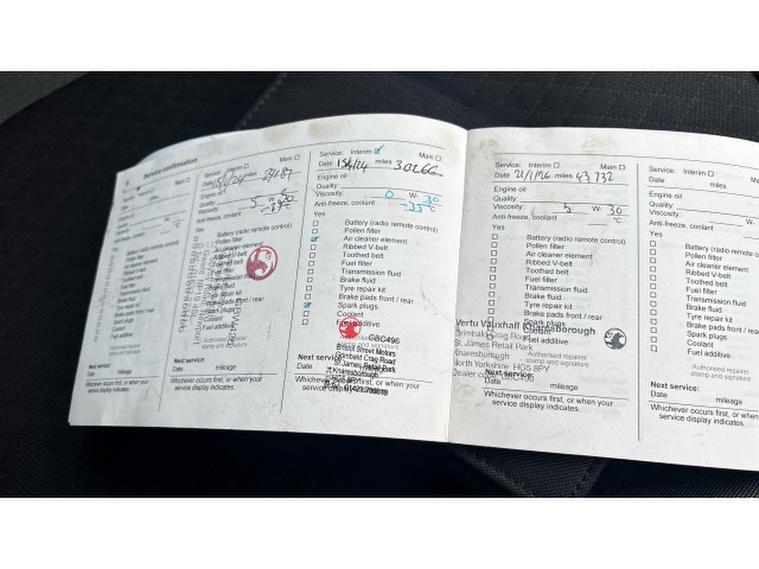 Service confirmation
Service: Interim Main
Date miles
Engine oil
Quality:
Viscosity:
Anti-freeze, coolant
Yes
Battery (radio remote control)
Pollen filter
Air cleaner element
Ribbed V-belt
Toothed belt
Fuel filter
Transmission fluid
Brake fluid
Tyre repair kit
Brake pads front / rear
Spark plugs
Coolant
Fuel additive
Authorised repairer
stamp and signature
Next service:
Date mileage
Whichever occurs first, or when your
service display indicates.
Main
Date miles
Engine oil
Quality:
Viscosity: 5 W- 30
Anti-freeze, coolant °C
Yes
Battery (radio remote control)
Pollen filter
Air cleaner element
Ribbed V-belt
Toothed belt
Fuel filter
Transmission fluid
Brake fluid
Tyre repair kit
Brake pads front / rear
Spark plugs
Coolant
Fuel additive
Authorised repairer
stamp and signature
Next service:
Date mileage
Whichever occurs first, or when your
service display indicates.
Service: Interim Main
Date miles 30266
Engine oil
Quality:
Viscosity: 0 W- 30
Anti-freeze, coolant -35 °C
Yes
Battery (radio remote control)
Pollen filter
Air cleaner element
Ribbed V-belt
Toothed belt
Fuel filter
Transmission fluid
Brake fluid
Tyre repair kit
Brake pads front / rear
Spark plugs
Coolant
Fuel additive
GBC496
Bristol Street Motors
Grimbald Crag Road
St James Retail Park
Knaresborough
HG5 8PY
Next service:
Date
Whichever occurs first, or when your
service display indicates.
Service: Interim Main
Date 21/1/26 miles 43,732
Engine oil
Quality:
Viscosity: 5 W- 30
Anti-freeze, coolant °C
Yes
Battery (radio remote control)
Pollen filter
Air cleaner element
Ribbed V-belt
Toothed belt
Fuel filter
Transmission fluid
Brake fluid
Tyre repair kit
Brake pads front / rear
Spark plugs
Coolant
Fuel additive
Vertu Vauxhall Knaresborough
Grimbald Crag Road
St. James Retail Park
Knaresborough
North Yorkshire HG5 8PY
Authorised repairer
stamp and signature
Next service:
Date mileage
Whichever occurs first, or when your
service display indicates.
Service: Interim
Date miles
Engine oil
Quality:
Viscosity:
Anti-freeze, coolant
Yes
Battery (radio remote control)
Pollen filter
Air cleaner element
Ribbed V-belt
Toothed belt
Fuel filter
Transmission fluid
Brake fluid
Tyre repair kit
Brake pads front / rear
Spark plugs
Coolant
Fuel additive
Authorised repairer
stamp and signature
Next service:
Date mileage
Whichever occurs first, or when
service display indicates.